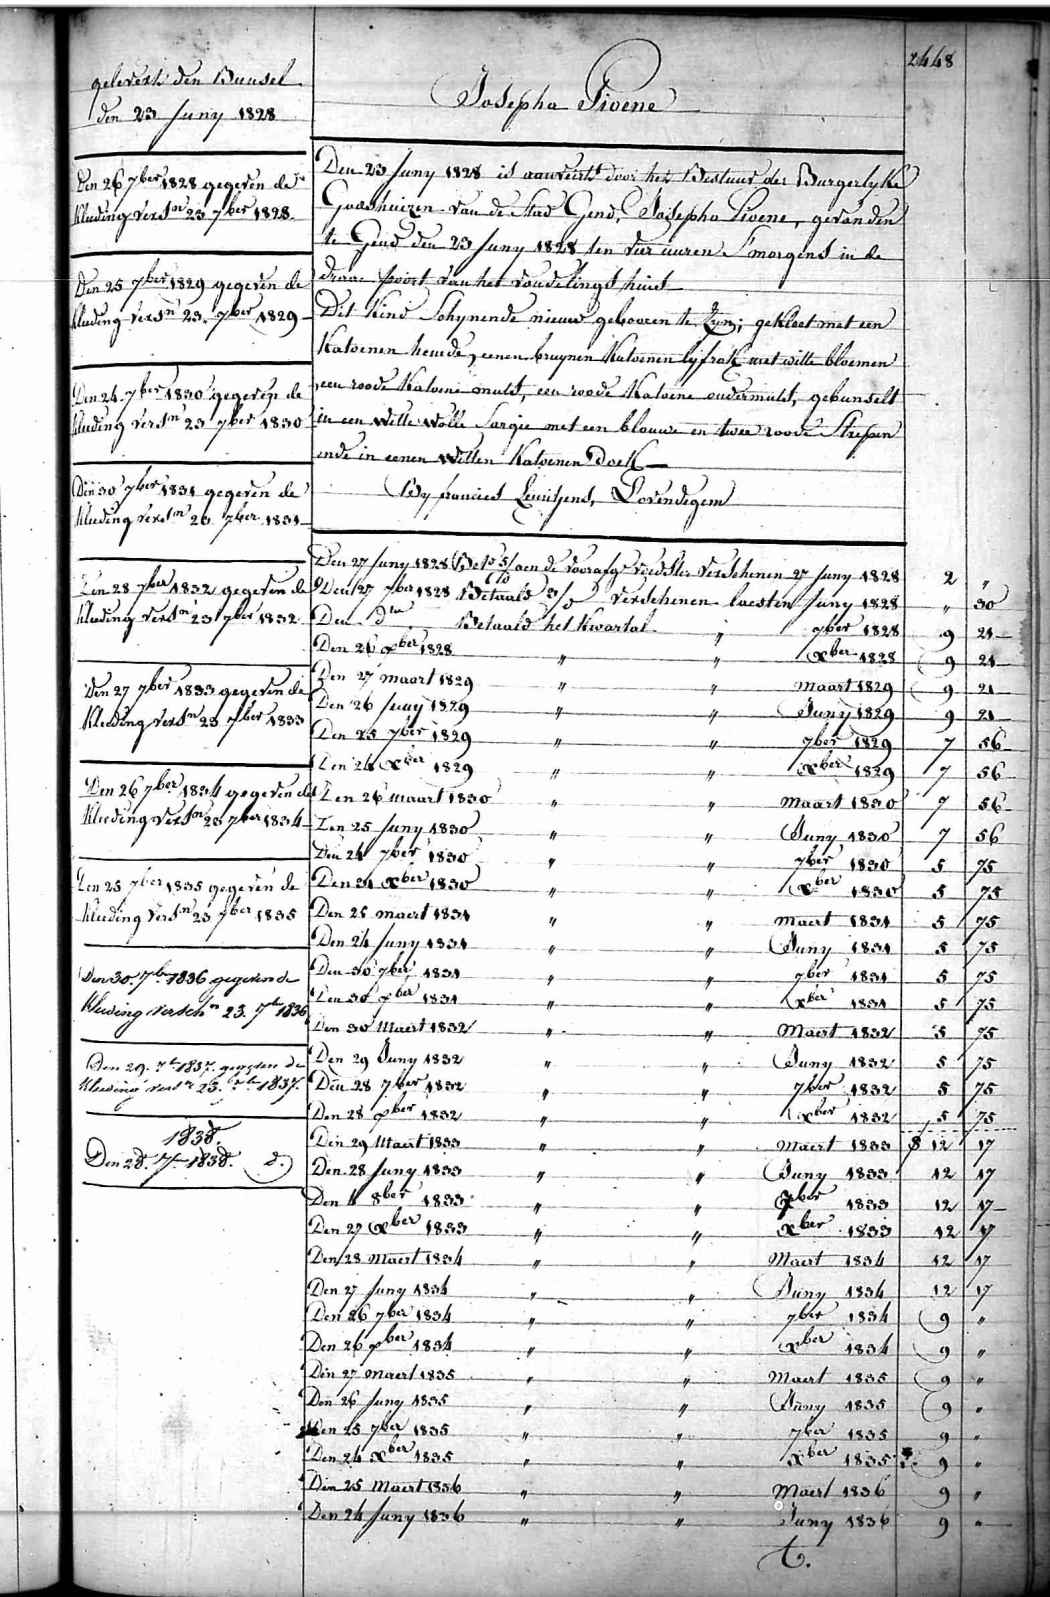 2448
gelevert den Bunsel
den 23 Juny 1828
Josepha Pivene
Den 26 7ber 1828 gegeven de
kleeding versn 23 7ber 1828.
Den 25 7ber 1829 gegeven de
kleeding versn 23. 7ber 1829
Den 24. 7ber 1830 gegeven de
kleeding versn 23 7ber 1830
Den 30 7ber 1831 gegeven de
kleeding versn 23 7ber 1831
Den 28 7ber 1832 gegeven de
kleeding versn 23 7ber 1832
Den 27 7ber 1833 gegeven de
kleeding versn 23 7ber 1833
Den 26 7ber 1834 gegeven de
kleeding versn 23 7ber 1834
Den 25 7ber 1835 gegeven de
kleeding versn 23 7ber 1835
Den 30. 7b 1836 gegeven de
kleeding verschn 23. 7b 1836
Den 29. 7b 1837. gegeven de
kleeding versn 23. 7b 1837.
1838.
Den 28. 7b 1838. d.)
Den 23 Juny 1828 is aanveirt door het Bestuur der Burgerlyke
Godsheizen van de Stad Gend, Josepha Pivene, gevonden
te Gend den 23 Juny 1828 ten vier uuren S'morgens in de
draae poort van het vondelings huis
Dit Kind Schynende nieuw gebooren te Zyn; gekleet met een
Katoenen hemde, eenen bruynen Katoenen lyfrok met witte bloemen
een roode Katoene muts, een roode Katoene ondermuts, gebunselt
in een Witte Wolle Sargie met een blouwe en twee roode Strepen
ende in eenen Witten Katoenen Doek
By francies Lenitjens, Lovendegem
Den 27 Juny 1828 Bet. aen de voorafg. voedster verschenen 27 Juny 1828 2 "
Den 27 7ber 1828 Betaald verschenen laesten Juny 1828 " 30
Den dto Betaald het Kwartal " 7ber 1828 9 21
Den 26 xber 1828 " " xber 1828 9 21
Den 27 maart 1829 " " maart 1829 9 21
Den 26 Juny 1829 " " Juny 1829 9 21
Den 25 7ber 1829 " " 7ber 1829 7 56
Den 24 xber 1829 " " xber 1829 7 56
Den 26 maart 1830 " " maart 1830 7 56
Den 25 Juny 1830 " " Juny 1830 7 56
Den 24 7ber 1830 " " 7ber 1830 5 75
Den 31 xber 1830 " " xber 1830 5 75
Den 25 maert 1831 " " maert 1831 5 75
Den 24 Juny 1831 " " Juny 1831 5 75
Den 30 7ber 1831 " " 7ber 1831 5 75
Den 30 xber 1831 " " xber 1831 5 75
Den 30 Maert 1832 " " Maert 1832 5 75
Den 29 Juny 1832 " " Juny 1832 5 75
Den 28 7ber 1832 " " 7ber 1832 5 75
Den 28 xber 1832 " " xber 1832 5 75
Den 29 Maert 1833 " " Maert 1833 12 17
Den 28 Juny 1833 " " Juny 1833 12 17
Den 4 8ber 1833 " " 7ber 1833 12 17
Den 27 xber 1833 " " xber 1833 12 17
Den 28 maert 1834 " " Maert 1834 12 17
Den 27 Juny 1834 " " Juny 1834 12 17
Den 26 7ber 1834 " " 7ber 1834 9 "
Den 26 xber 1834 " " xber 1834 9 "
Den 27 maert 1835 " " Maert 1835 9 "
Den 26 Juny 1835 " " Juny 1835 9 "
Den 25 7ber 1835 " " 7ber 1835 9 "
Den 24 xber 1835 " " xber 1835 9 "
Den 25 Maert 1836 " " Maert 1836 9 "
Den 24 Juny 1836 " " Juny 1836 9 "
T.